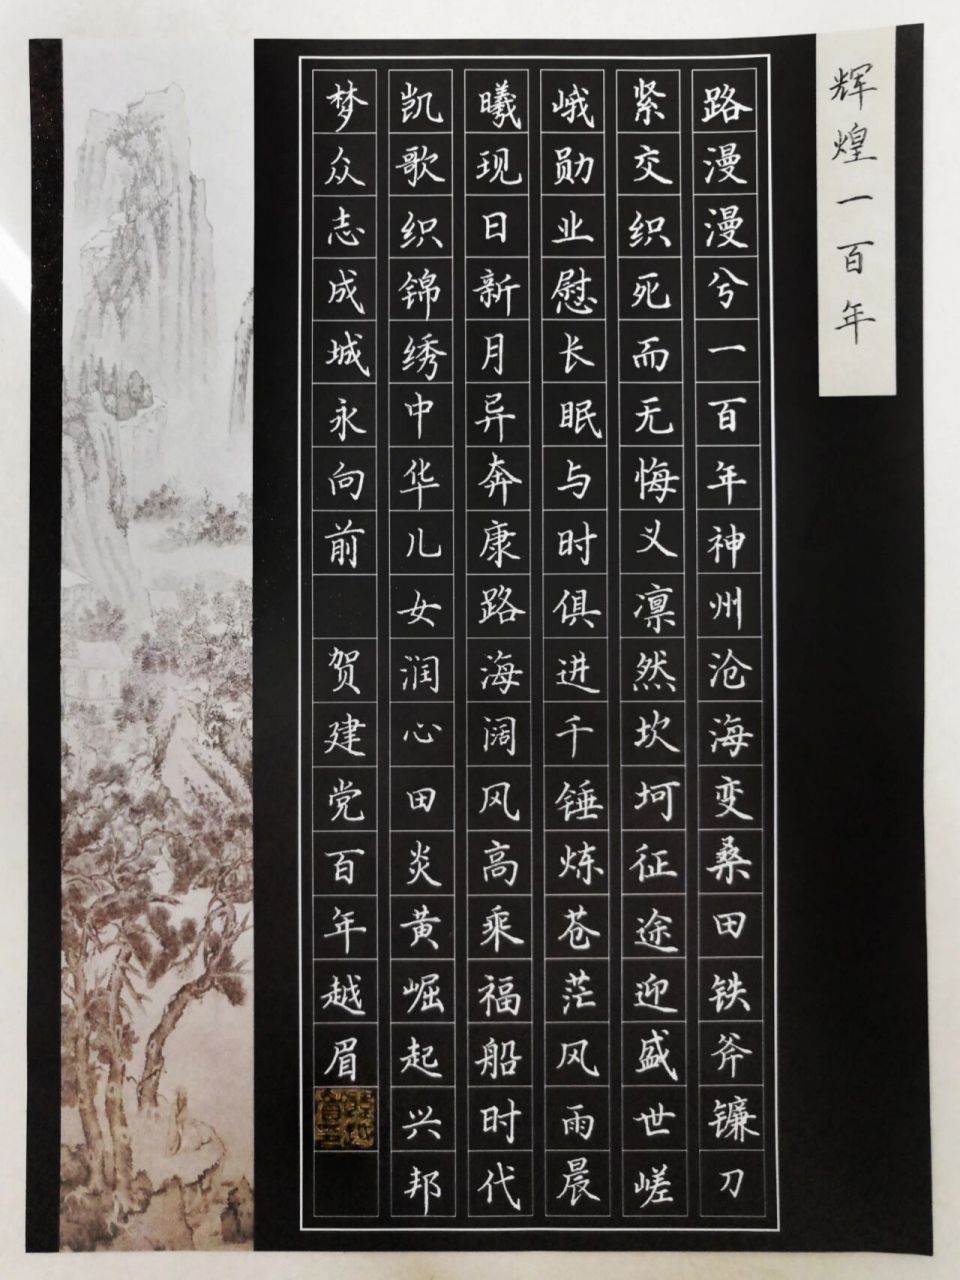 辉煌一百年
路漫漫兮一百年神州沧海变桑田铁斧镰刀
紧交织死而无悔义凛然坎坷征途迎盛世嵯
峨勋业慰长眠与时俱进千锤炼苍茫风雨晨
曦现日新月异奔康路海阔风高乘福船时代
凯歌织锦绣中华儿女润心田炎黄崛起兴邦
梦众志成城永向前 贺建党百年越眉